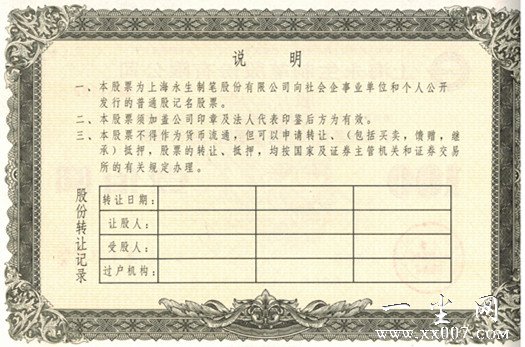 说 明
一、本股票为上海永生制笔股份有限公司向社会企事业单位和个人公开
发行的普通股记名股票。
二、本股票须加盖公司印章及法人代表印鉴后方为有效。
三、本股票不得作为货币流通，但可以申请转让、（包括买卖，馈赠，继
承）抵押，股票的转让、抵押，均按国家及证券主管机关和证券交易
所的有关规定办理。
股份转让记录
转让日期：
让股人：
受股人：
过户机构：
一尘网
www.xx007.com